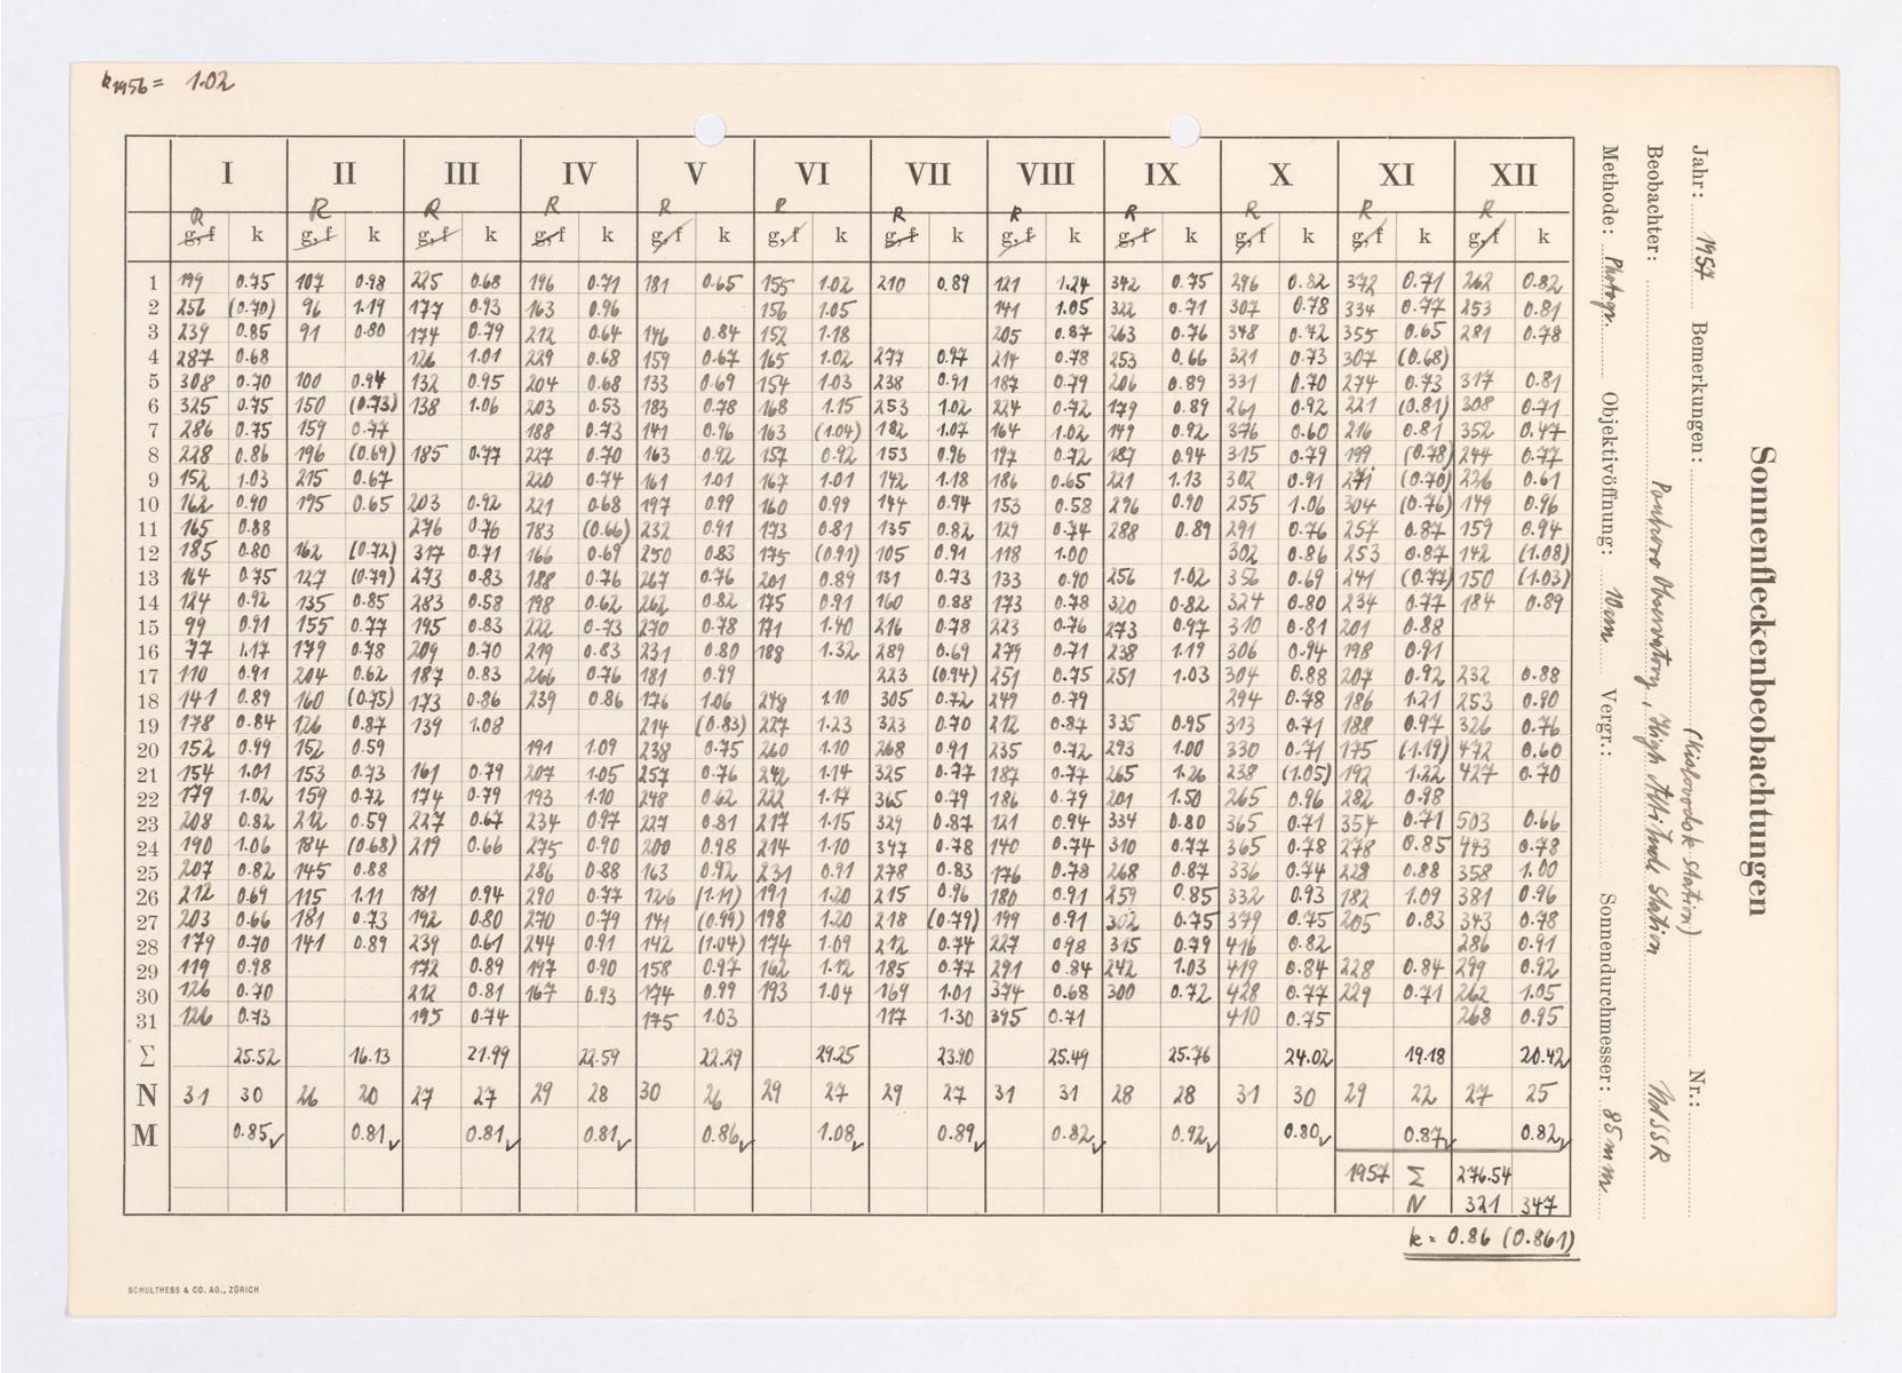 k1956 = 1.02
I II III IV V VI VII VIII IX X XI XII
R R R R R R R R R R R R
g, f k g, f k g, f k g, f k g, f k g, f k g, f k g, f k g, f k g, f k g, f k g, f k
1 199 0.75 107 0.98 225 0.68 196 0.71 181 0.65 155 1.02 210 0.89 121 1.24 342 0.75 296 0.82 372 0.71 262 0.82
2 256 (0.70) 96 1.19 177 0.93 163 0.96 156 1.05 141 1.05 322 0.71 307 0.78 334 0.77 253 0.81
3 239 0.85 91 0.80 174 0.79 212 0.64 146 0.84 152 1.18 205 0.87 263 0.76 348 0.72 355 0.65 281 0.78
4 287 0.68 126 1.01 229 0.68 159 0.67 165 1.02 277 0.97 214 0.78 253 0.66 321 0.73 307 (0.68)
5 308 0.70 100 0.94 132 0.95 204 0.68 133 0.69 154 1.03 238 0.91 187 0.79 206 0.89 331 0.70 274 0.73 317 0.81
6 325 0.75 150 (0.73) 138 1.06 203 0.53 183 0.78 168 1.15 253 1.02 224 0.72 179 0.89 261 0.92 221 (0.81) 308 0.71
7 286 0.75 159 0.77 188 0.73 141 0.96 163 (1.04) 182 1.07 164 1.02 149 0.92 376 0.60 216 0.81 352 0.47
8 228 0.86 196 (0.69) 185 0.77 227 0.70 163 0.92 157 0.92 153 0.96 197 0.72 187 0.94 315 0.79 199 (0.78) 244 0.77
9 152 1.03 215 0.67 220 0.74 161 1.01 167 1.01 142 1.18 186 0.65 221 1.13 302 0.91 271 (0.70) 226 0.61
10 162 0.90 195 0.65 203 0.92 221 0.68 197 0.99 160 0.99 144 0.94 153 0.58 296 0.90 255 1.06 304 (0.76) 149 0.96
11 165 0.88 276 0.76 183 (0.66) 232 0.91 173 0.81 135 0.82 129 0.74 288 0.89 291 0.76 257 0.87 159 0.94
12 185 0.80 162 (0.72) 317 0.71 166 0.69 250 0.83 175 (0.91) 105 0.91 118 1.00 302 0.86 253 0.87 142 (1.08)
13 164 0.75 127 (0.79) 273 0.83 188 0.76 267 0.76 201 0.89 131 0.73 133 0.90 256 1.02 356 0.69 241 (0.77) 150 (1.03)
14 124 0.92 135 0.85 283 0.58 198 0.62 262 0.82 175 0.91 160 0.88 173 0.78 320 0.82 324 0.80 234 0.77 184 0.89
15 99 0.91 155 0.77 195 0.83 222 0.73 270 0.78 171 1.40 216 0.78 223 0.76 273 0.97 310 0.81 201 0.88
16 77 1.17 179 0.78 209 0.70 219 0.83 231 0.80 188 1.32 289 0.69 279 0.71 238 1.19 306 0.94 198 0.91
17 110 0.91 204 0.62 187 0.83 266 0.76 181 0.99 223 (0.94) 251 0.75 251 1.03 304 0.88 207 0.92 232 0.88
18 141 0.89 160 (0.75) 173 0.86 239 0.86 176 1.06 248 1.10 305 0.72 249 0.79 294 0.78 186 1.21 253 0.80
19 178 0.84 126 0.87 139 1.08 214 (0.83) 227 1.23 323 0.70 212 0.87 335 0.95 313 0.71 188 0.97 326 0.76
20 152 0.99 152 0.59 191 1.09 238 0.75 260 1.10 268 0.91 235 0.72 293 1.00 330 0.71 175 (1.19) 472 0.60
21 154 1.01 153 0.73 161 0.79 207 1.05 257 0.76 242 1.14 325 0.77 187 0.77 265 1.26 238 (1.05) 192 1.22 427 0.70
22 179 1.02 159 0.72 174 0.79 193 1.10 248 0.62 222 1.17 365 0.79 186 0.79 201 1.50 265 0.96 282 0.98
23 208 0.82 212 0.59 227 0.67 234 0.97 227 0.81 217 1.15 329 0.87 121 0.94 334 0.80 365 0.71 354 0.71 503 0.66
24 190 1.06 184 (0.68) 219 0.66 275 0.90 200 0.98 214 1.10 347 0.78 140 0.74 310 0.77 365 0.78 278 0.85 443 0.78
25 207 0.82 145 0.88 286 0.88 163 0.92 231 0.91 278 0.83 176 0.78 268 0.87 336 0.74 228 0.88 358 1.00
26 212 0.69 115 1.11 181 0.94 290 0.77 126 (1.11) 191 1.20 215 0.96 180 0.91 259 0.85 332 0.93 182 1.09 381 0.96
27 203 0.66 181 0.73 192 0.80 270 0.79 141 (0.99) 198 1.20 218 (0.79) 199 0.91 302 0.75 379 0.75 205 0.83 343 0.78
28 179 0.70 141 0.89 239 0.61 244 0.91 142 (1.04) 174 1.09 212 0.74 227 0.98 315 0.79 416 0.82 286 0.91
29 119 0.98 172 0.89 197 0.90 158 0.97 162 1.12 185 0.77 291 0.84 242 1.03 419 0.84 228 0.84 299 0.92
30 126 0.70 212 0.81 167 0.93 174 0.99 193 1.04 169 1.01 374 0.68 300 0.72 428 0.77 229 0.71 262 1.05
31 126 0.73 195 0.74 175 1.03 117 1.30 395 0.71 410 0.75 268 0.95
Σ 25.52 16.13 21.99 22.59 22.29 29.25 23.90 25.49 25.76 24.02 19.18 20.42
N 31 30 26 20 27 27 29 28 30 26 29 27 29 27 31 31 28 28 31 30 29 22 27 25
M 0.85✓ 0.81✓ 0.81✓ 0.81✓ 0.86✓ 1.08✓ 0.89✓ 0.82✓ 0.92✓ 0.80✓ 0.87✓ 0.82✓
1957 Σ 276.54
N 321 347
k = 0.86 (0.861)
SCHULTHESS & CO. AG., ZÜRICH
Sonnenfleckenbeobachtungen
Jahr: 1957 Bemerkungen: (Kislovodsk station) Nr.:
Beobachter: Poulkovo Observatory, High Altitude Station UdSSR
Methode: Photogr. Objektivöffnung: 10 cm Vergr.: Sonnendurchmesser: 85 mm